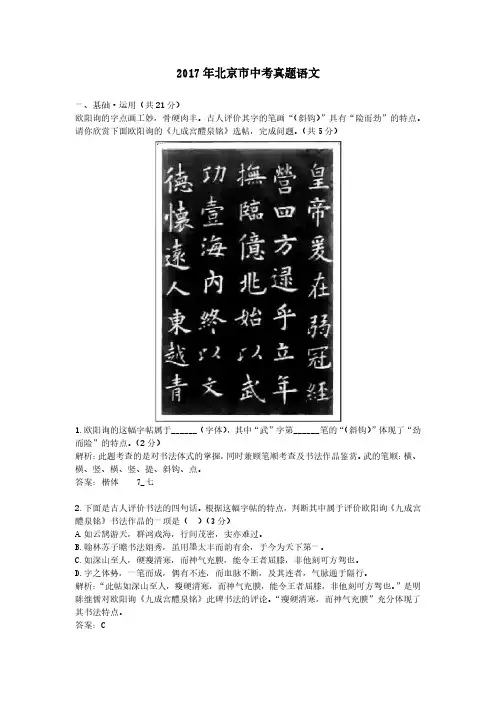 2017年北京市中考真题语文
一、基础·运用（共21分）
欧阳询的字点画工妙，骨硬肉丰。古人评价其字的笔画“（斜钩）”具有“险而劲”的特点。
请你欣赏下面欧阳询的《九成宫醴泉铭》选帖，完成问题。（共5分）
皇帝爰在弱冠經
營四方逮乎立年
撫臨億兆始以武
功壹海內終以文
德懷遠人東越青
1.欧阳询的这幅字帖属于______（字体），其中“武”字第______笔的“（斜钩）”体现了“劲
而险”的特点。（2分）
解析：此题考查的是对书法体式的掌握，同时兼顾笔顺考查及书法作品鉴赏。武的笔顺：横、
横、竖、横、竖、提、斜钩、点。
答案：楷体 7_七
2.下面是古人评价书法的四句话。根据这幅字帖的特点，判断其中属于评价欧阳询《九成宫
醴泉铭》书法作品的一项是（ ）（3分）
A.如云鹄游天，群鸿戏海，行间茂密，实亦难过。
B.翰林苏子瞻书法娟秀，虽用墨太丰而韵有余，于今为天下第一。
C.如深山至人，硬瘦清寒，而神气充腴，能令王者屈膝，非他刻可方驾也。
D.字之体势，一笔而成，偶有不连，而血脉不断，及其连者，气脉通于隔行。
解析：“此帖如深山至人，瘦硬清寒，而神气充腴，能令王者屈膝，非他刻可方驾也。”是明
陈继儒对欧阳询《九成宫醴泉铭》此碑书法的评论。“瘦硬清寒，而神气充腴”充分体现了
其书法特点。
答案：C